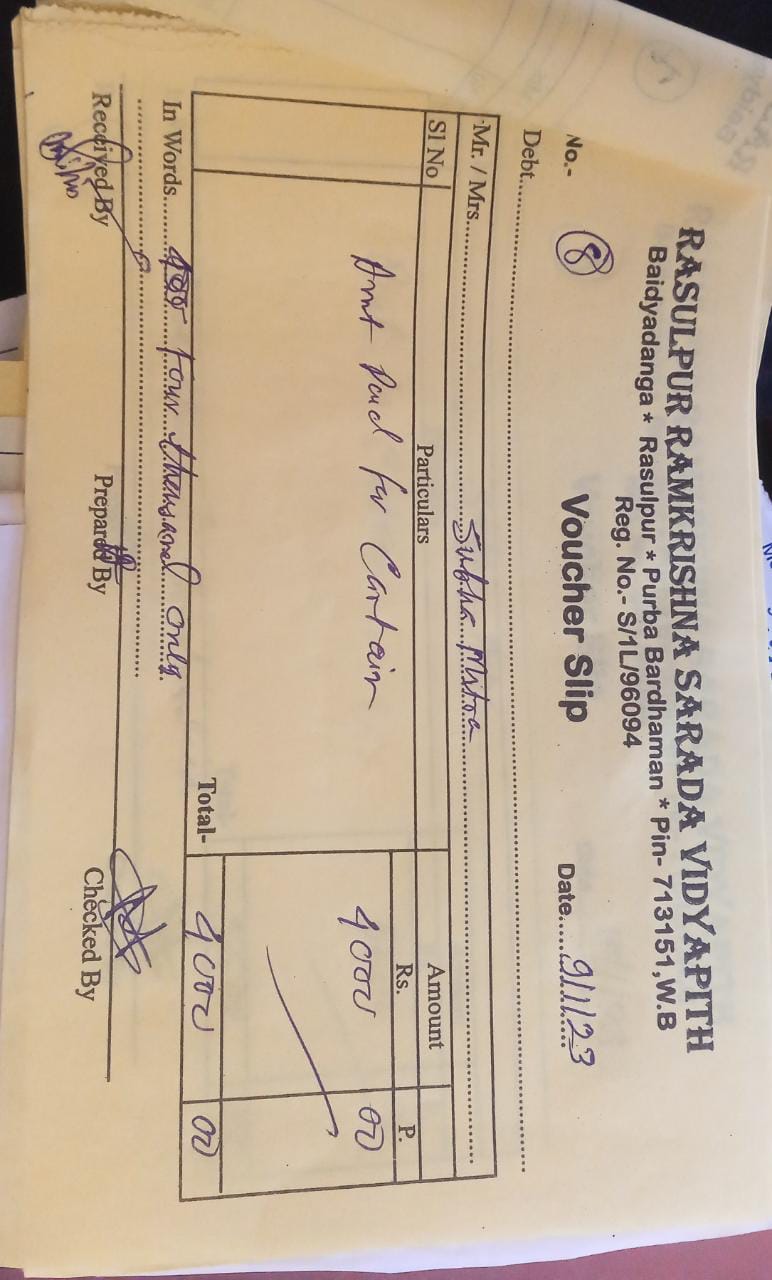 RASULPUR RAMKRISHNA SARADA VIDYAPITH
Baidyadanga * Rasulpur * Purba Bardhaman * Pin- 713151,W.B
Reg. No.- S/1L/96094
No.- 8 Voucher Slip Date.....9/1/23
Debt.
Mr. / Mrs. Subha Mitra
Sl No Particulars Amount
Rs. P.
Amt Paid for Cartain 4000 00
Total- 4000 00
In Words Four thousand only
Received By Prepared By Checked By